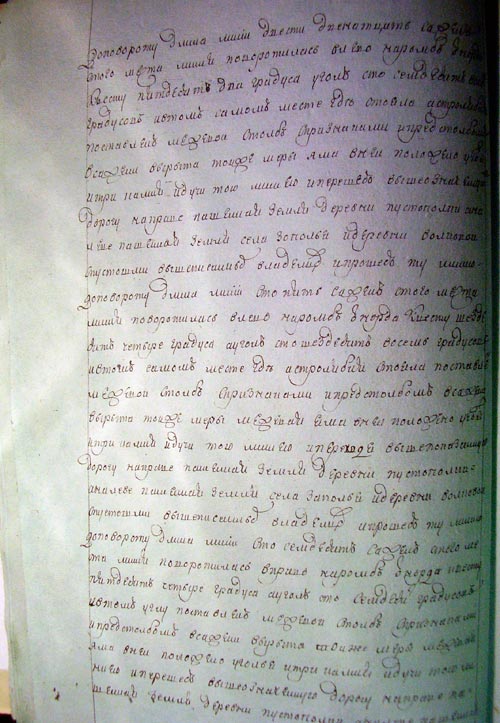 доповороту длина линии двести двенатцать сажень
стого места линия поворотилась влево наромбъ
квесту пятдесятъ два градуса уголъ сто семдесятъ
градусовъ ивтомъ самомъ месте где стояла астролябия
поставленъ межевой столбъ спризнаками ипредстолбомъ
всажени вырыта тояже меры яма вней положено уголье
итри камня идучи тою линиею иперешедъ вышеозначенную
дорогу направе пашенная земля деревни пустополья
налеве пашенная земля села заполья идеревни
спустошми вышеписанныхъ владений ипрошедъ ту линию
доповороту длина линии сто пять сажень стого места
линия поворотилась влево наромбъ внордъ квесту шездесятъ
четыре градуса ауголъ сто шездесятъ восемь градусовъ
ивтомъ самомъ месте где астролябия стояла поставленъ
межевой столбъ спризнаками ипредстолбомъ всажени
вырыта тояже меры межевая яма вней положено уголье
итри камня идучи тою линиею иперешедъ вышепоказанную
дорогу направе пашенная земля деревни пустополья
аналеве пашенная земля села заполья идеревни
спустошми вышеписанныхъ владений ипрошедъ ту линию
доповороту длина линии сто семдесятъ сажень стого ме
та линия поворотилась вправо наромбъ внордъ квесту
пятдесятъ четыре градуса ауголъ сто семдесятъ градусовъ
ивтомъ углу поставленъ межевой столбъ спризнаками
ипредстолбомъ всажени вырыта тояже меры межевая
яма вней положено уголья итри камня идучи тою ли
ниею иперешедъ вышеозначенную дорогу направе па
шенная земля деревни пустополья